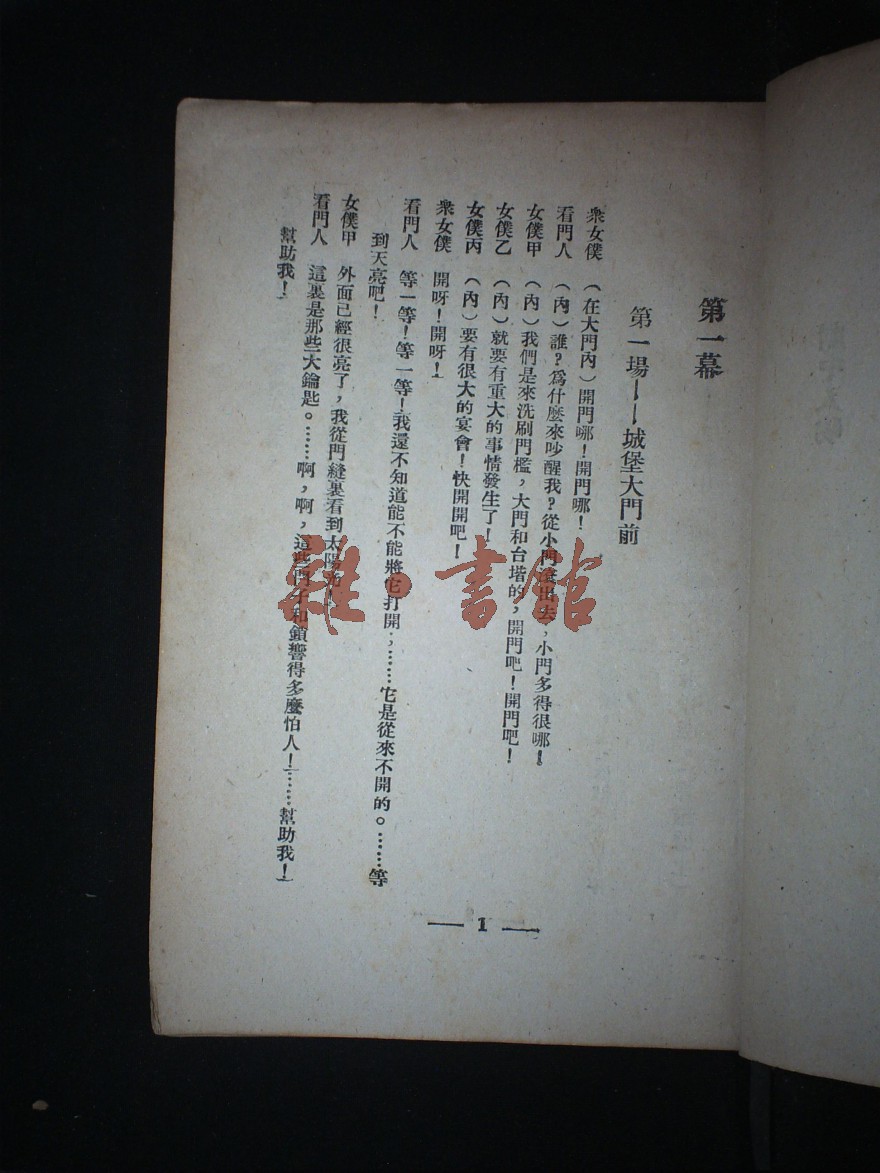 第一幕
第一場——城堡大門前
衆女僕 (在大門內)開門哪!開門哪!
看門人 (內)誰?爲什麼來吵醒我?從小門滾出去,小門多得很哪!
女僕甲 (內)我們是來洗刷門檻,大門和台堦的,開門吧!開門吧!
女僕乙 (內)就要有重大的事情發生了!
女僕丙 (內)要有很大的宴會!快開開吧!
衆女僕 開呀!開呀!
看門人 等一等!等一等!我還不知道能不能將它打開,……它是從來不開的。……等
到天亮吧!
女僕甲 外面已經很亮了,我從門縫裏看到太陽
看門人 這裏是那些大鑰匙。……啊,啊,這些門子和鎖響得多麼怕人!……幫助我!
幫助我!
— 1 —
雜·書館